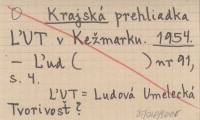 O Krajská prehliadka
ĽUT v Kežmarku. 1954.
– Ľud ( ) nr 91,
s. 4.
ĽUT = Ľudová Umelecká
Tvorivosť?